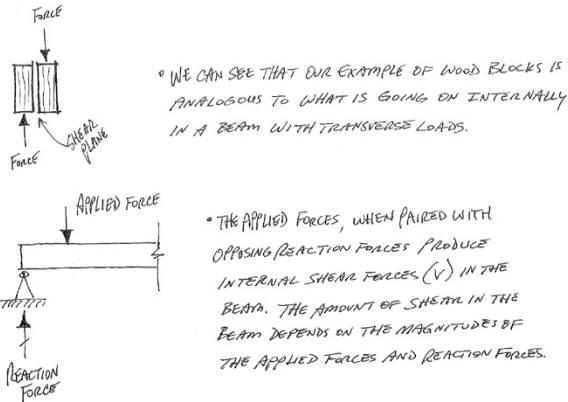 FORCE
• WE CAN SEE THAT OUR EXAMPLE OF WOOD BLOCKS IS
ANALOGOUS TO WHAT IS GOING ON INTERNALLY
IN A BEAM WITH TRANSVERSE LOADS.
SHEAR
PLANE
FORCE
APPLIED FORCE
• THE APPLIED FORCES, WHEN PAIRED WITH
OPPOSING REACTION FORCES PRODUCE
INTERNAL SHEAR FORCES (V) IN THE
BEAM. THE AMOUNT OF SHEAR IN THE
BEAM DEPENDS ON THE MAGNITUDES OF
THE APPLIED FORCES AND REACTION FORCES.
REACTION
FORCE